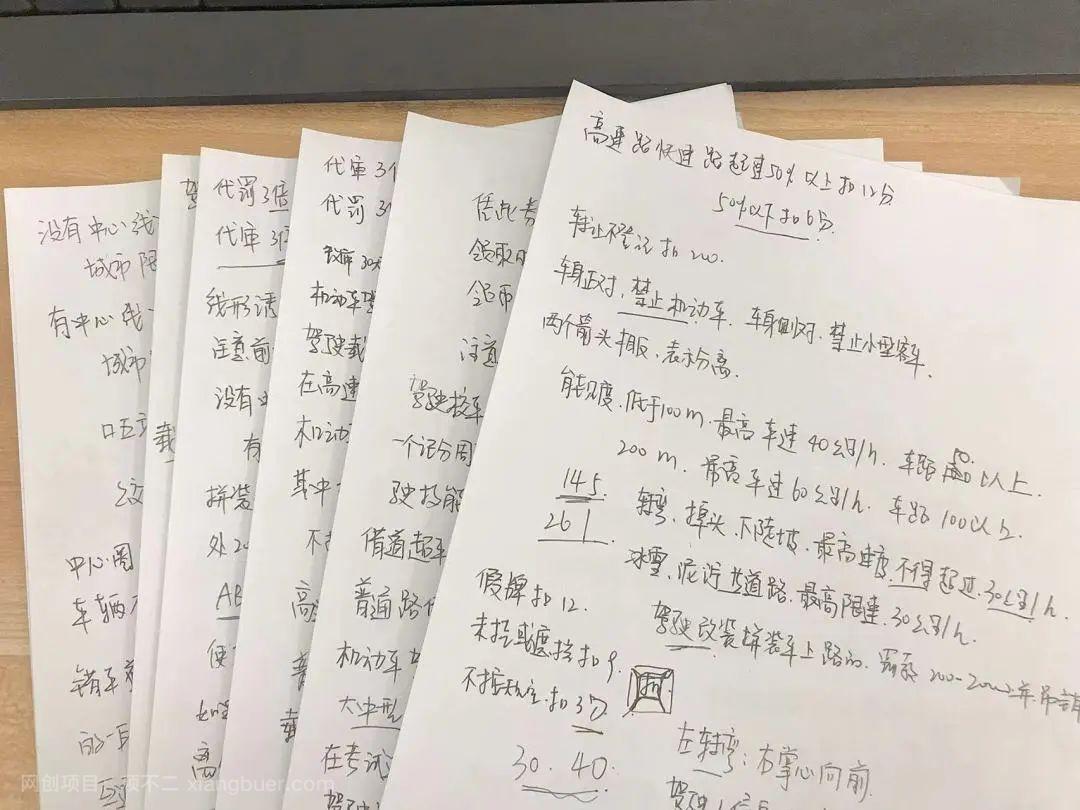 没有中心线
城市限
有中心线
城市
口五
中心圈
车辆不
销车
的一
载
代罚3倍
代库3倍
线形诱
注意前
没有
有
拼装
外20
AB
便
如
离
代库3个
代罚3个
机动车
驾驶载
在高速
机动
其中一
不
高
普
载
凭此考
领取
领
注意
驾驶校车
一个记分周
驶技能
借道超车
普通路
机动车
大中型
在考试
驾驶
高速路快速路超速50%以上扣12分
50%以下扣6分
转让不登记扣200.
车身正对,禁止机动车.车身侧对,禁止小型客车
两个箭头相反,表示分离.
能见度,低于100m.最高车速40公里/h.车距50以上.
200m.最高车速60公里/h.车距100以上
145
转弯、掉头、下陡坡,最高速度,不得超过30公里/h
261
冰雪,泥泞道路,最高限速,30公里/h.
驾驶改装拼装车上路的,罚款200-2000并吊销
假牌扣12.
未按或遮挡扣9.
不按规定.扣3
30.40
左转弯:右掌心向前
驾驶
网创项目_项不二 xiangbuer.com